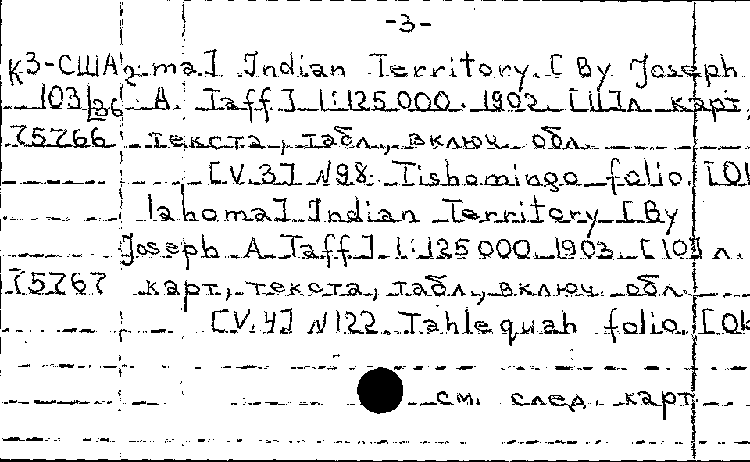 -3-
К3-США2 ma] Indian Territory. [By Joseph
103/36 A. Taff] 1:125.000. 1902. [11]л карт,
75766 текста, табл., включ обл.
[V.3] N98. Tishomingo folio. [Ok
lahoma] Indian Territory [By
Joseph A Taff] 1:125000. 1903. [10] л.
75767 карт, текста, табл., включ. обл.
[V.4] N122. Tahlequah folio. [Ok
см. след. карт